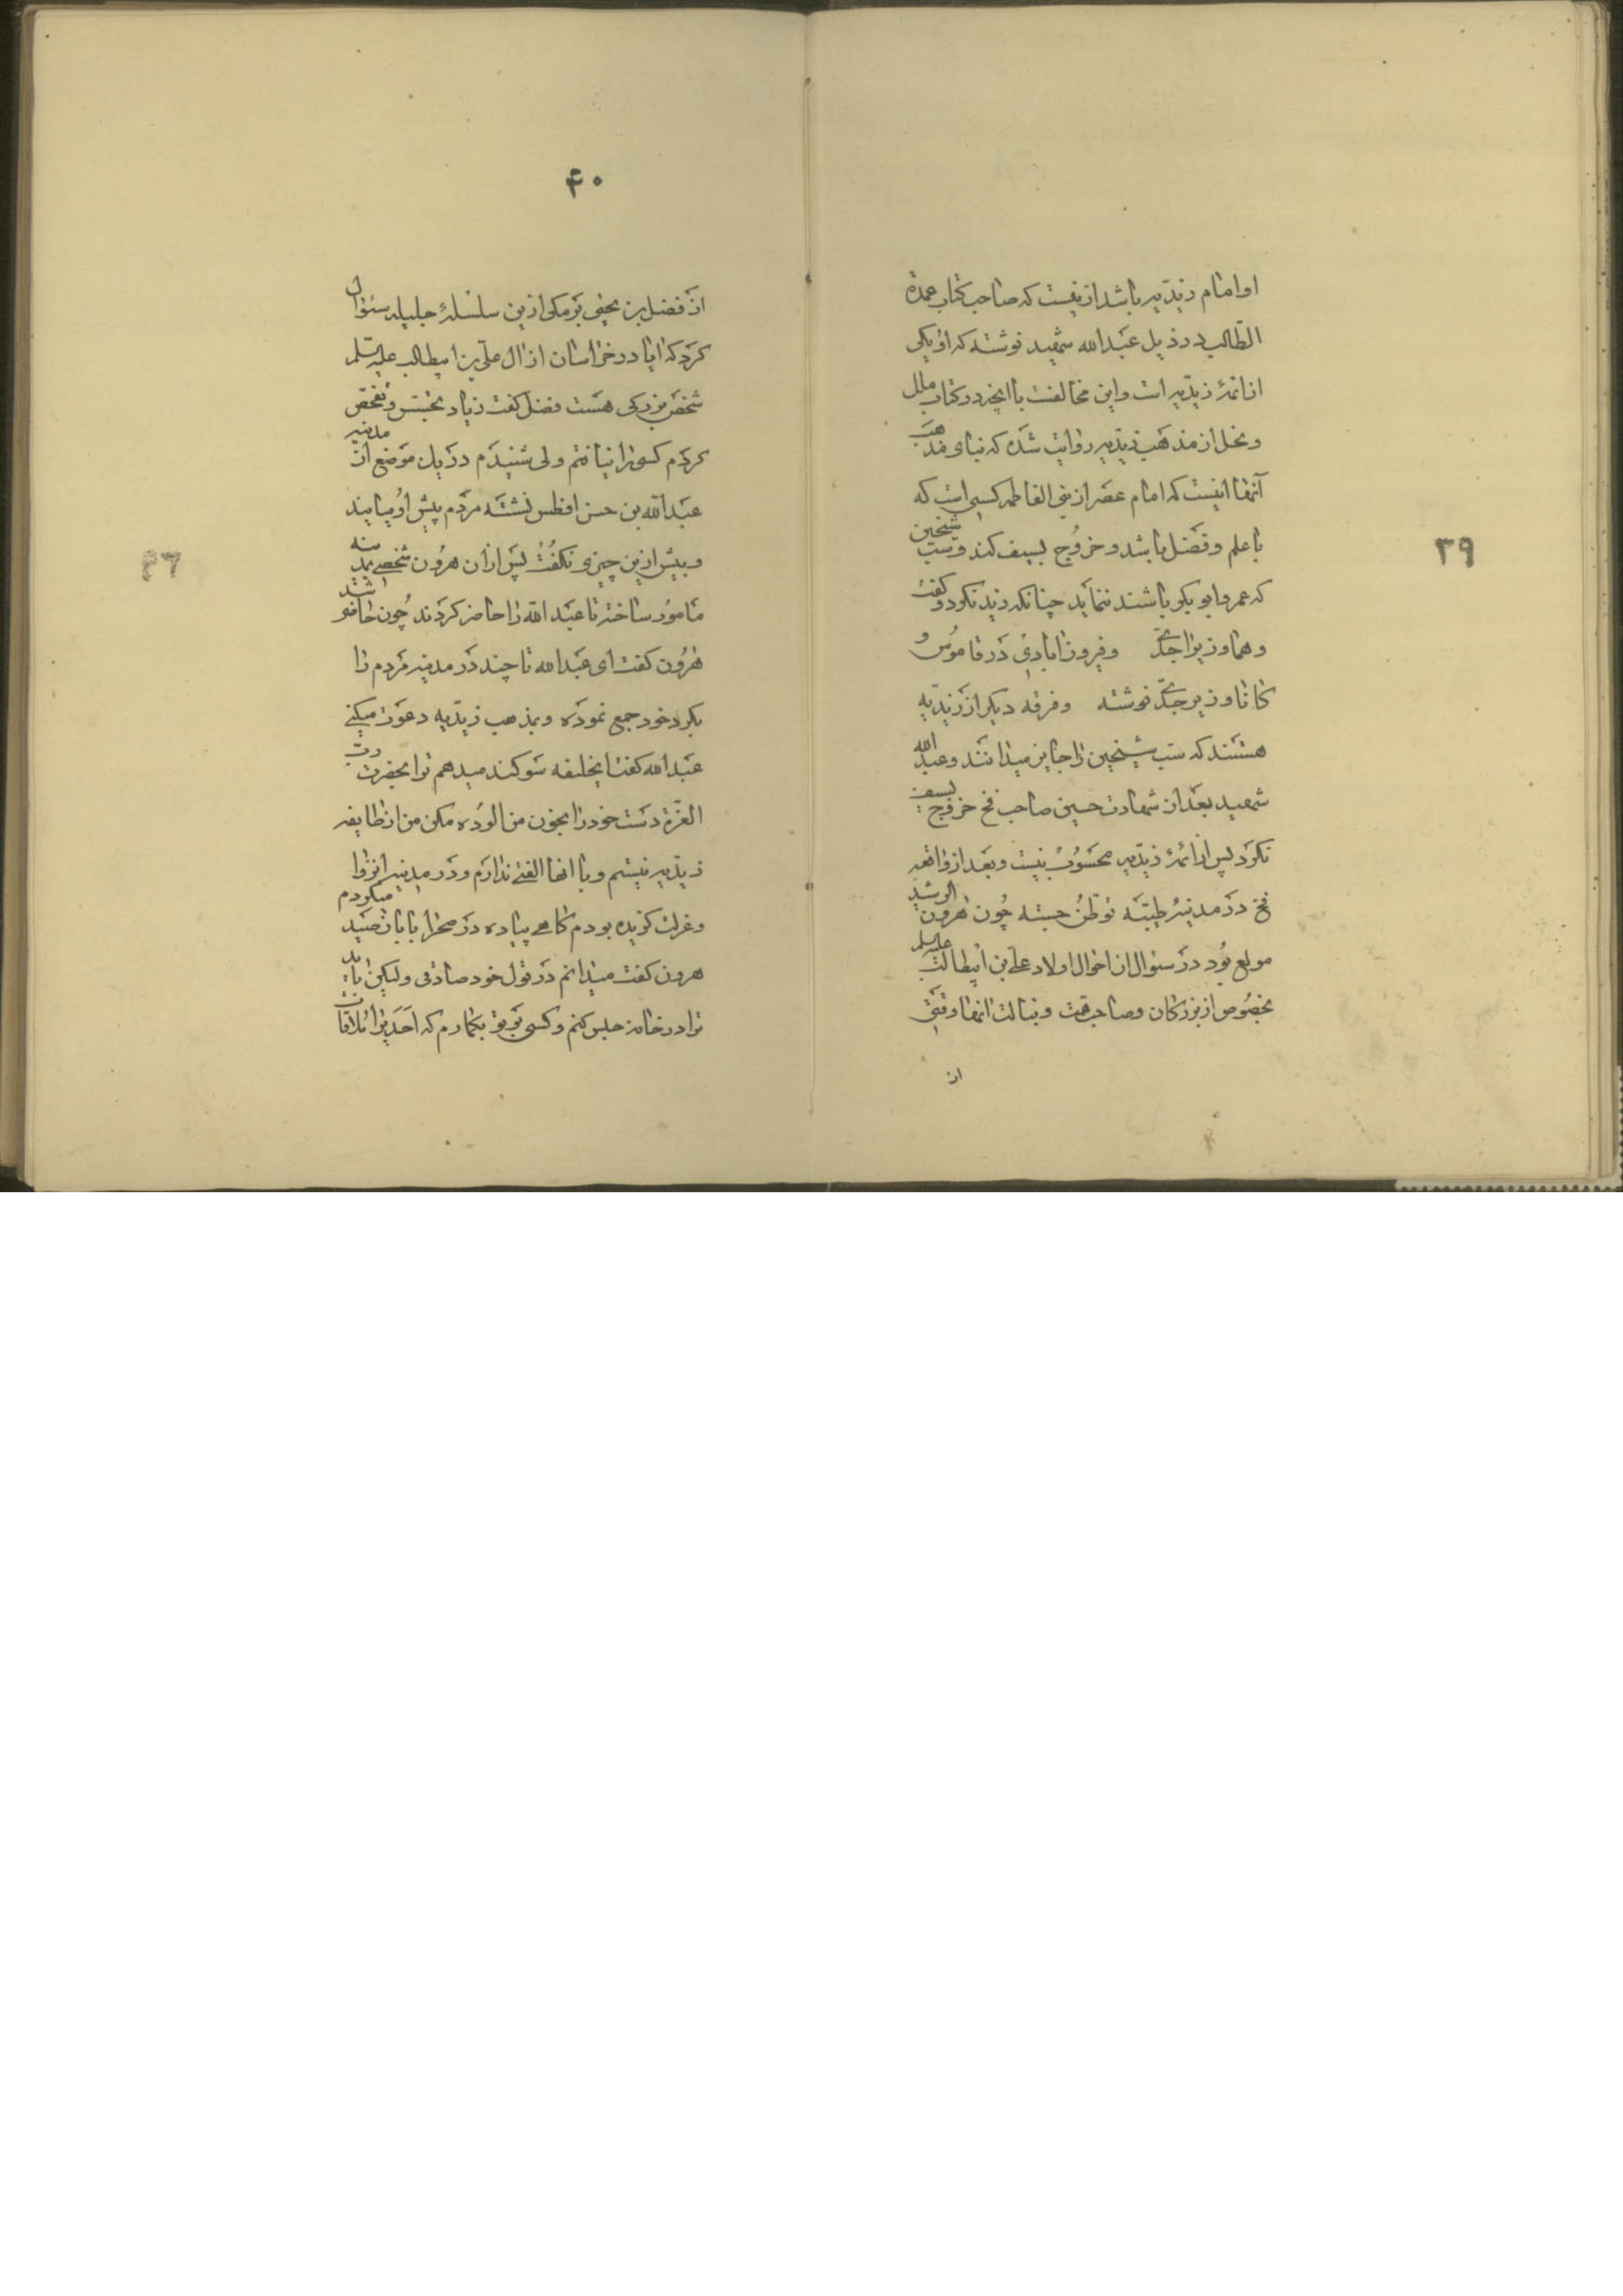 ۳۹
او امام زیدیه باشد ازینست که صاحب کتاب عمدة
الطّالب در ذیل عبدالله شهید نوشته که او یکی
از ائمهٔ زیدیه است و این مخالفت با آنچه در کتاب ملل
و نحل از مذهب زیدیه روایت شده که بنای مذهب
آنها اینست که امام عصر از بنی الفاطمه کسی است که
با علم و فضل باشد و خروج بسیف کند و سبّ شیخین
که عمر و ابو بکر باشند ننماید چنانکه زید نکرد و گفت
و هما وزیرا جدّی و فیروزابادی در قاموس و
کانا وزیر جدّی نوشته و فرقه دیگر از زیدیه
هستند که سبّ شیخین را جایز میدانند و عبدالله
شهید بعد از شهادت حسین صاحب فخ خروج بسیف
نکرد پس از ائمهٔ زیدیه محسوب نیست و بعد از واقعه
فخ در مدینهٔ طیّبه توطن جسته چون هرون الرشید
مولع بود در سئوال از احوال اولاد علی بن ابیطالب علیه السلم
بخصوص از بزرگان و صاحب همّت و نبالت آنها وقتی
از
۴۰
از فضل بن یحیی برمکی ازین سلسلهٔ جلیله سئوال
کرد که ایا در خراسان از ال علی بن ابیطالب علیه السلم
شخص بزرگی هست فضل گفت زیاد تجسّس و تفحّص
کردم کسی را نیافتم ولی شنیدم در یک موضع از مدینه
عبدالله بن حسن افطس نشسته مردم پیش او میایند
و بیش ازین چیزی نگفت پس از آن هرون شخصی بمدینه
مامور ساخته تا عبدالله را حاضر کردند چون حاضر شد
هرون گفت ای عبدالله تا چند در مدینه مردم را
بگرد خود جمع نموده و بمذهب زیدیه دعوت میکنی
عبدالله گفت ایخلیفه سوگند میدهم ترا بحضرت ربّ
العزّة دست خود را بخون من الوده مکن من از طایفه
زیدیه نیستم و با انها الفتی ندارم و در مدینه انزوا
و عزلت گزیده بودم گاهی پیاده در صحرا با باز صید میکردم
هرون گفت میدانم در قول خود صادقی ولیکن باید
ترا در خانه حبس کنم و کسی بر تو بگمارم که احدی ترا ملاقات